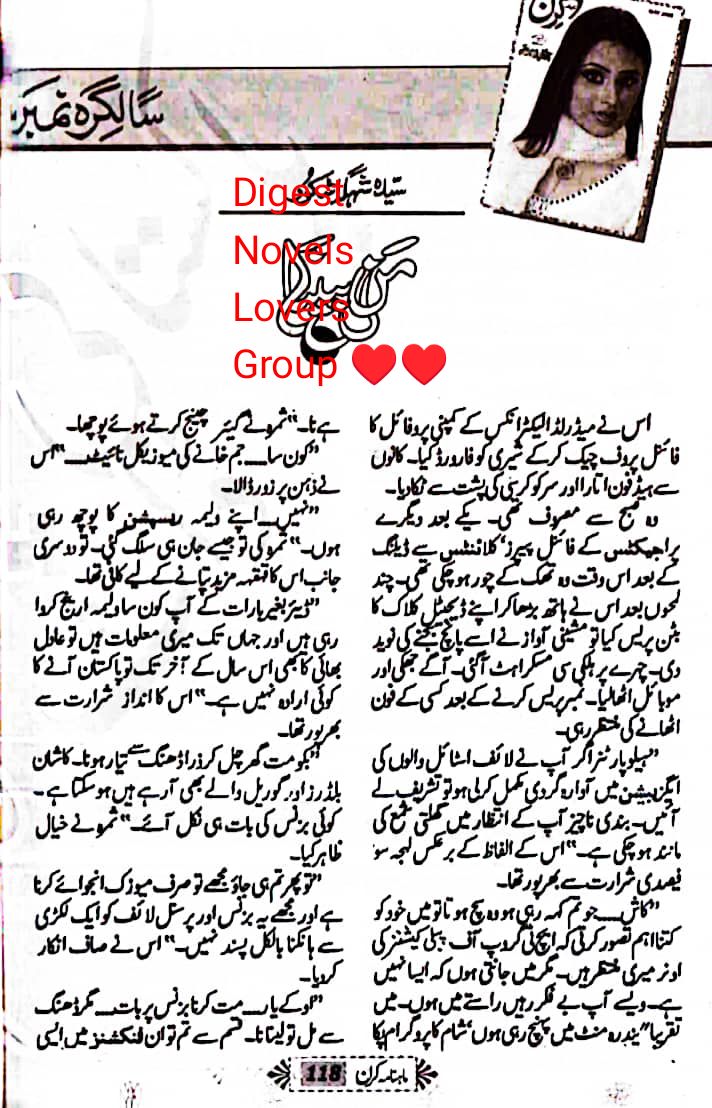 کرن
سالگرہ نمبر
سیدہ
Digest
Novels
Lovers
Group ❤❤
اس نے میڈرلڈ الیکٹرانکس کے کمپنی پروفائل کا
فائنل پروف چیک کرکے شیری کو فارورڈ کیا۔ کانوں
سے ہیڈ فون اتارا اور سر کو کرسی کی پشت سے ٹکا دیا۔
وہ صبح سے مصروف تھی۔ یکے بعد دیگرے
پراجیکٹس کے فائنل پیپرز‘ کلائنٹس سے ڈیلنگ
کے بعد اس وقت وہ تھک کے چور ہوچکی تھی۔ چند
لمحوں بعد اس نے ہاتھ بڑھا کر اپنے ڈیجیٹل کلاک کا
بٹن پریس کیا تو مشینی آواز نے اسے پانچ بجنے کی نوید
دی۔ چہرے پر ہلکی سی مسکراہٹ آگئی۔ آگے جھکی اور
موبائل اٹھالیا۔ نمبر پریس کرنے کے بعد کسی کے فون
اٹھانے کی منتظر رہی۔
”ہیلو پارٹنر اگر آپ نے لائف اسٹائل والوں کی
ایگزیبیشن میں آوارہ گردی مکمل کرلی ہو تو تشریف لے
آئیں۔ بندی ناچیز آپ کے انتظار میں گھلتی شمع کی
مانند ہوچکی ہے۔“ اس کے الفاظ کے برعکس لہجہ سو
فیصدی شرارت سے بھرپور تھا۔
”کاش ـــــ جو تم کہہ رہی ہو وہ سچ ہوتا تو میں خود کو
کتنا اہم تصور کرتی کہ ایچ ٹی گروپ آف پبلی کیشنز کی
اونر میری منتظر ہیں۔ مگر میں جانتی ہوں کہ ایسا نہیں
ہے۔ ویسے آپ بے فکر رہیں راستے میں ہوں۔ میں
تقریبا“ پندرہ منٹ میں پہنچ رہی ہوں‘ شام کا پروگرام پکا
ہے نا۔“ ثمو نے گیئر چینج کرتے ہوئے پوچھا۔
”کون سا ـــــ جم خانے کی میوزیکل نائیٹ ـــــ“ اس
نے ذہن پر زور ڈالا۔
”نہیں ـــــ اپنے ولیمہ ریسپشن کا پوچھ رہی
ہوں۔“ ثمو کی تو جیسے جان ہی سلگ گئی۔ تو دوسری
جانب اس کا قہقہہ مزید تپانے کے لیے کافی تھا۔
”ڈیئر بغیر بارات کے آپ کون سا ولیمہ ارینج کروا
رہی ہیں اور جہاں تک میری معلومات ہیں تو عادل
بھائی کا بھی اس سال کے آخر تک تو پاکستان آنے کا
کوئی ارادہ نہیں ہے۔“ اس کا انداز شرارت سے
بھرپور تھا۔
”بکو مت گھر چل کر ذرا ڈھنگ سے تیار ہونا۔ کاشان
بلڈرز اور گوریل والے بھی آرہے ہیں ہوسکتا ہے۔
کوئی بزنس کی بات ہی نکل آئے۔“ ثمو نے خیال
ظاہر کیا۔
”تو پھر تم ہی جاؤ مجھے تو صرف میوزک انجوائے کرنا
ہے اور مجھے یہ بزنس اور پرسنل لائف کو ایک لکڑی
سے ہانکنا بالکل پسند نہیں۔“ اس نے صاف انکار
کردیا۔
”اوکے یار ـــــ مت کرنا بزنس پر بات ـــــ مگر ڈھنگ
سے مل تو لینا نا۔ قسم سے تم تو ان فنکشنز میں ایسی
ماہنامہ کرن 118